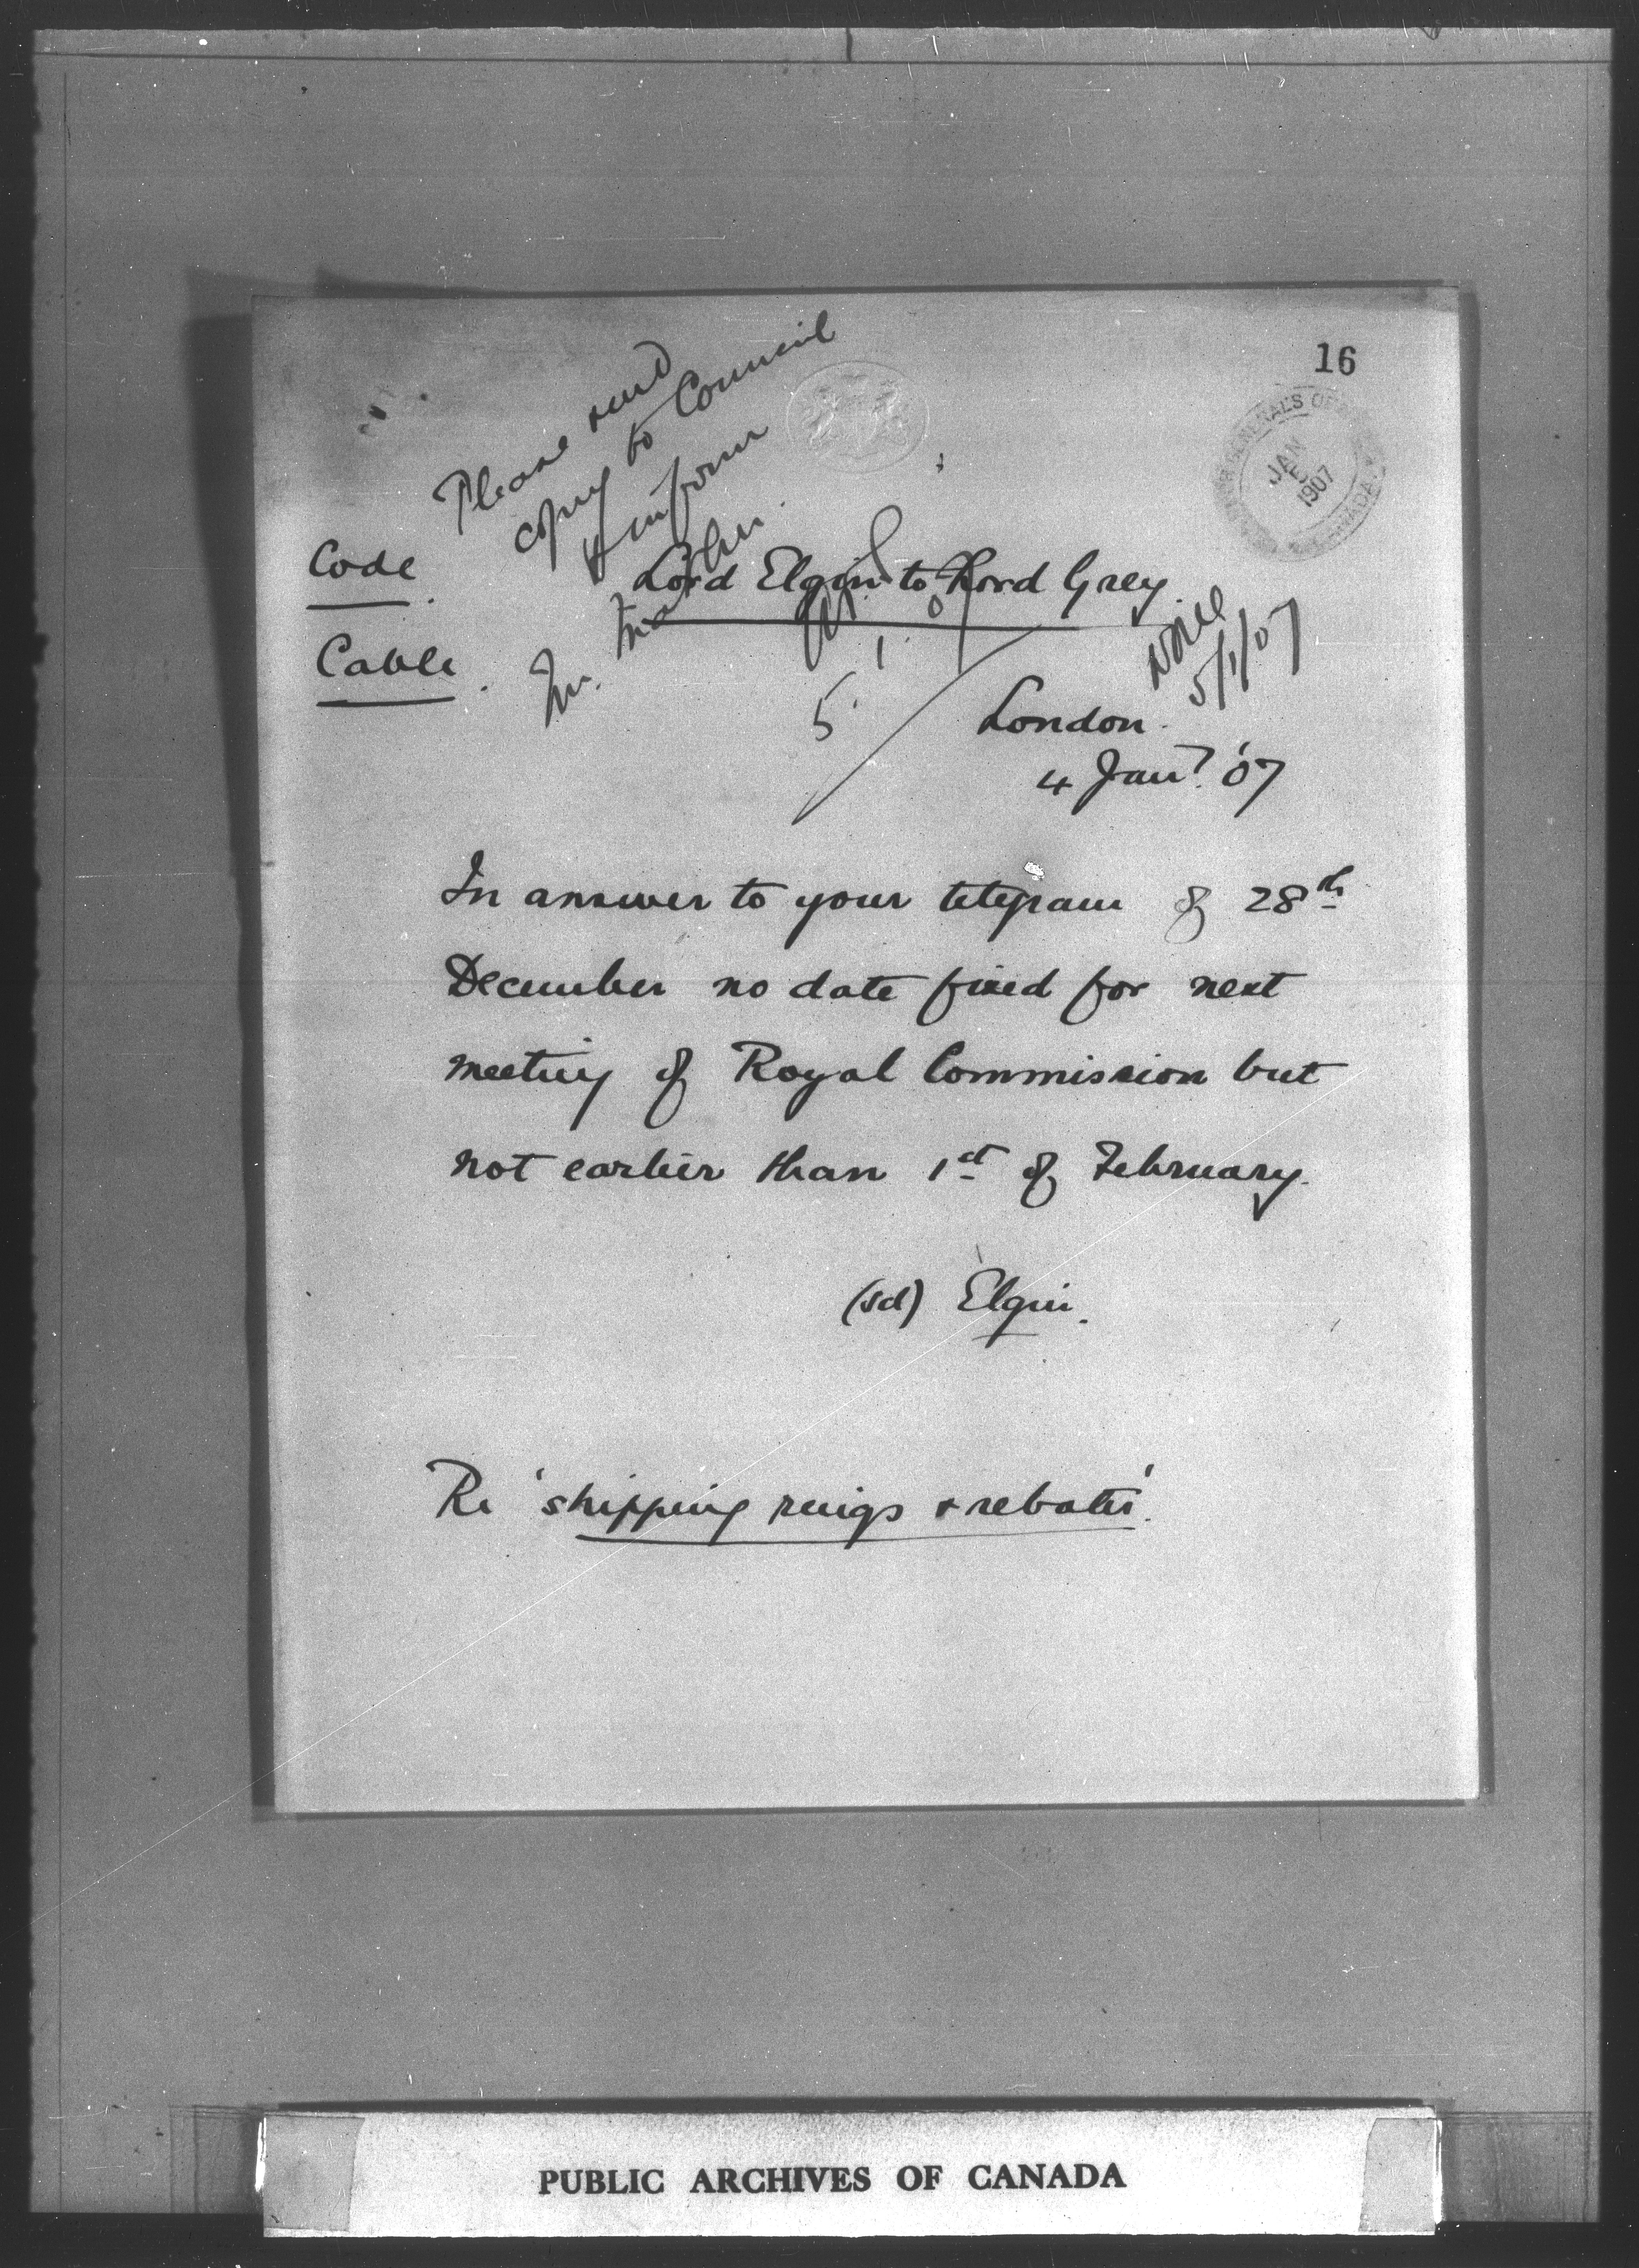 16
GOVERNOR GENERAL'S OFFICE CANADA
JAN
5
1907
Please send
copy to Council
& inform
Code.
Lord Elgin to Lord Grey.
Cable.
5. 1. 07
5/1/07
London.
4 Jany. '07
In answer to your telegram of 28th
December no date fixed for next
meeting of Royal Commission but
not earlier than 1st of February.
(sd) Elgin.
Re 'shipping rings & rebates'.
PUBLIC ARCHIVES OF CANADA